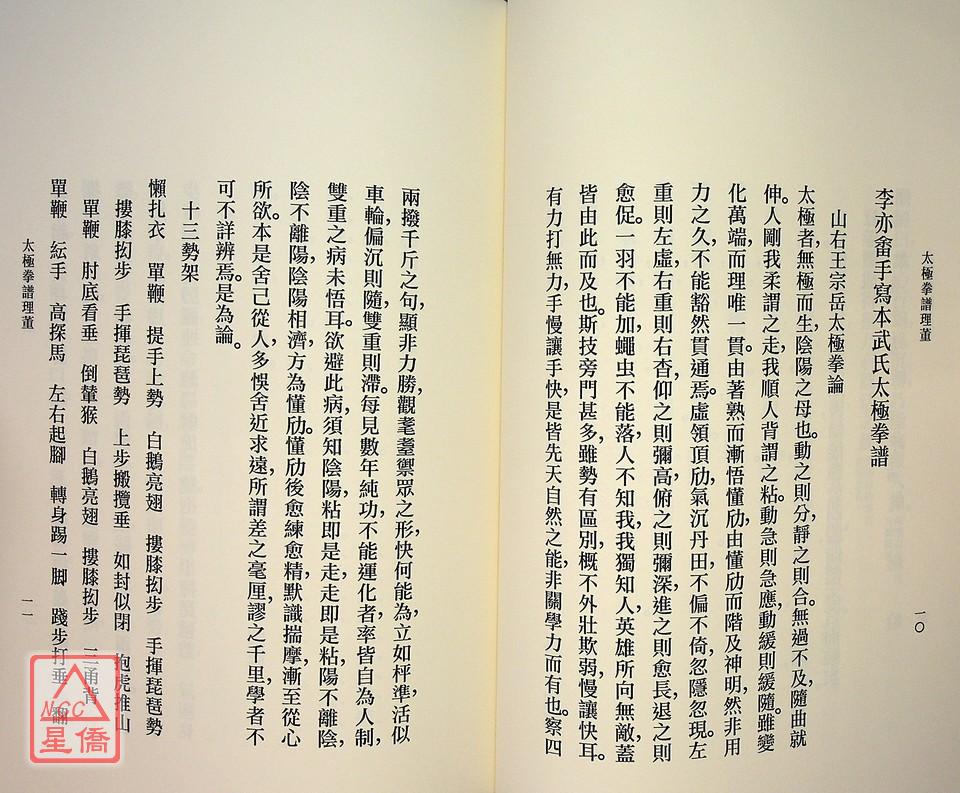 太極拳譜理董
一〇
李亦畬手寫本武氏太極拳譜
山右王宗岳太極拳論
太極者，無極而生，陰陽之母也。動之則分，靜之則合。無過不及，隨曲就
伸。人剛我柔謂之走，我順人背謂之粘。動急則急應，動緩則緩隨。雖變
化萬端，而理唯一貫。由著熟而漸悟懂劤，由懂劤而階及神明。然非用
力之久，不能豁然貫通焉。虛領頂劤，氣沉丹田，不偏不倚，忽隱忽現。左
重則左虛，右重則右杳，仰之則彌高，俯之則彌深，進之則愈長，退之則
愈促。一羽不能加，蠅虫不能落，人不知我，我獨知人，英雄所向無敵，蓋
皆由此而及也。斯技旁門甚多，雖勢有區別，概不外壯欺弱，慢讓快耳。
有力打無力，手慢讓手快，是皆先天自然之能，非關學力而有也。察四
兩撥千斤之句，顯非力勝，觀耄耋禦眾之形，快何能為，立如枰準，活似
車輪，偏沉則隨，雙重則滯。每見數年純功，不能運化者，率皆自為人制，
雙重之病未悟耳。欲避此病，須知陰陽，粘即是走，走即是粘，陽不離陰，
陰不離陽，陰陽相濟，方為懂劤。懂劤後愈練愈精，默識揣摩，漸至從心
所欲。本是舍己從人，多悞舍近求遠，所謂差之毫厘，謬之千里，學者不
可不詳辨焉。是為論。
十三勢架
懶扎衣　單鞭　提手上勢　白鵝亮翅　摟膝抝步　手揮琵琶勢
摟膝抝步　手揮琵琶勢　上步搬攬垂　如封似閉　抱虎推山
單鞭　肘底看垂　倒輦猴　白鵝亮翅　摟膝抝步　三甬背
單鞭　紜手　高探馬　左右起腳　轉身踢一脚　踐步打垂　翻
太極拳譜理董
一一
NCC
星僑